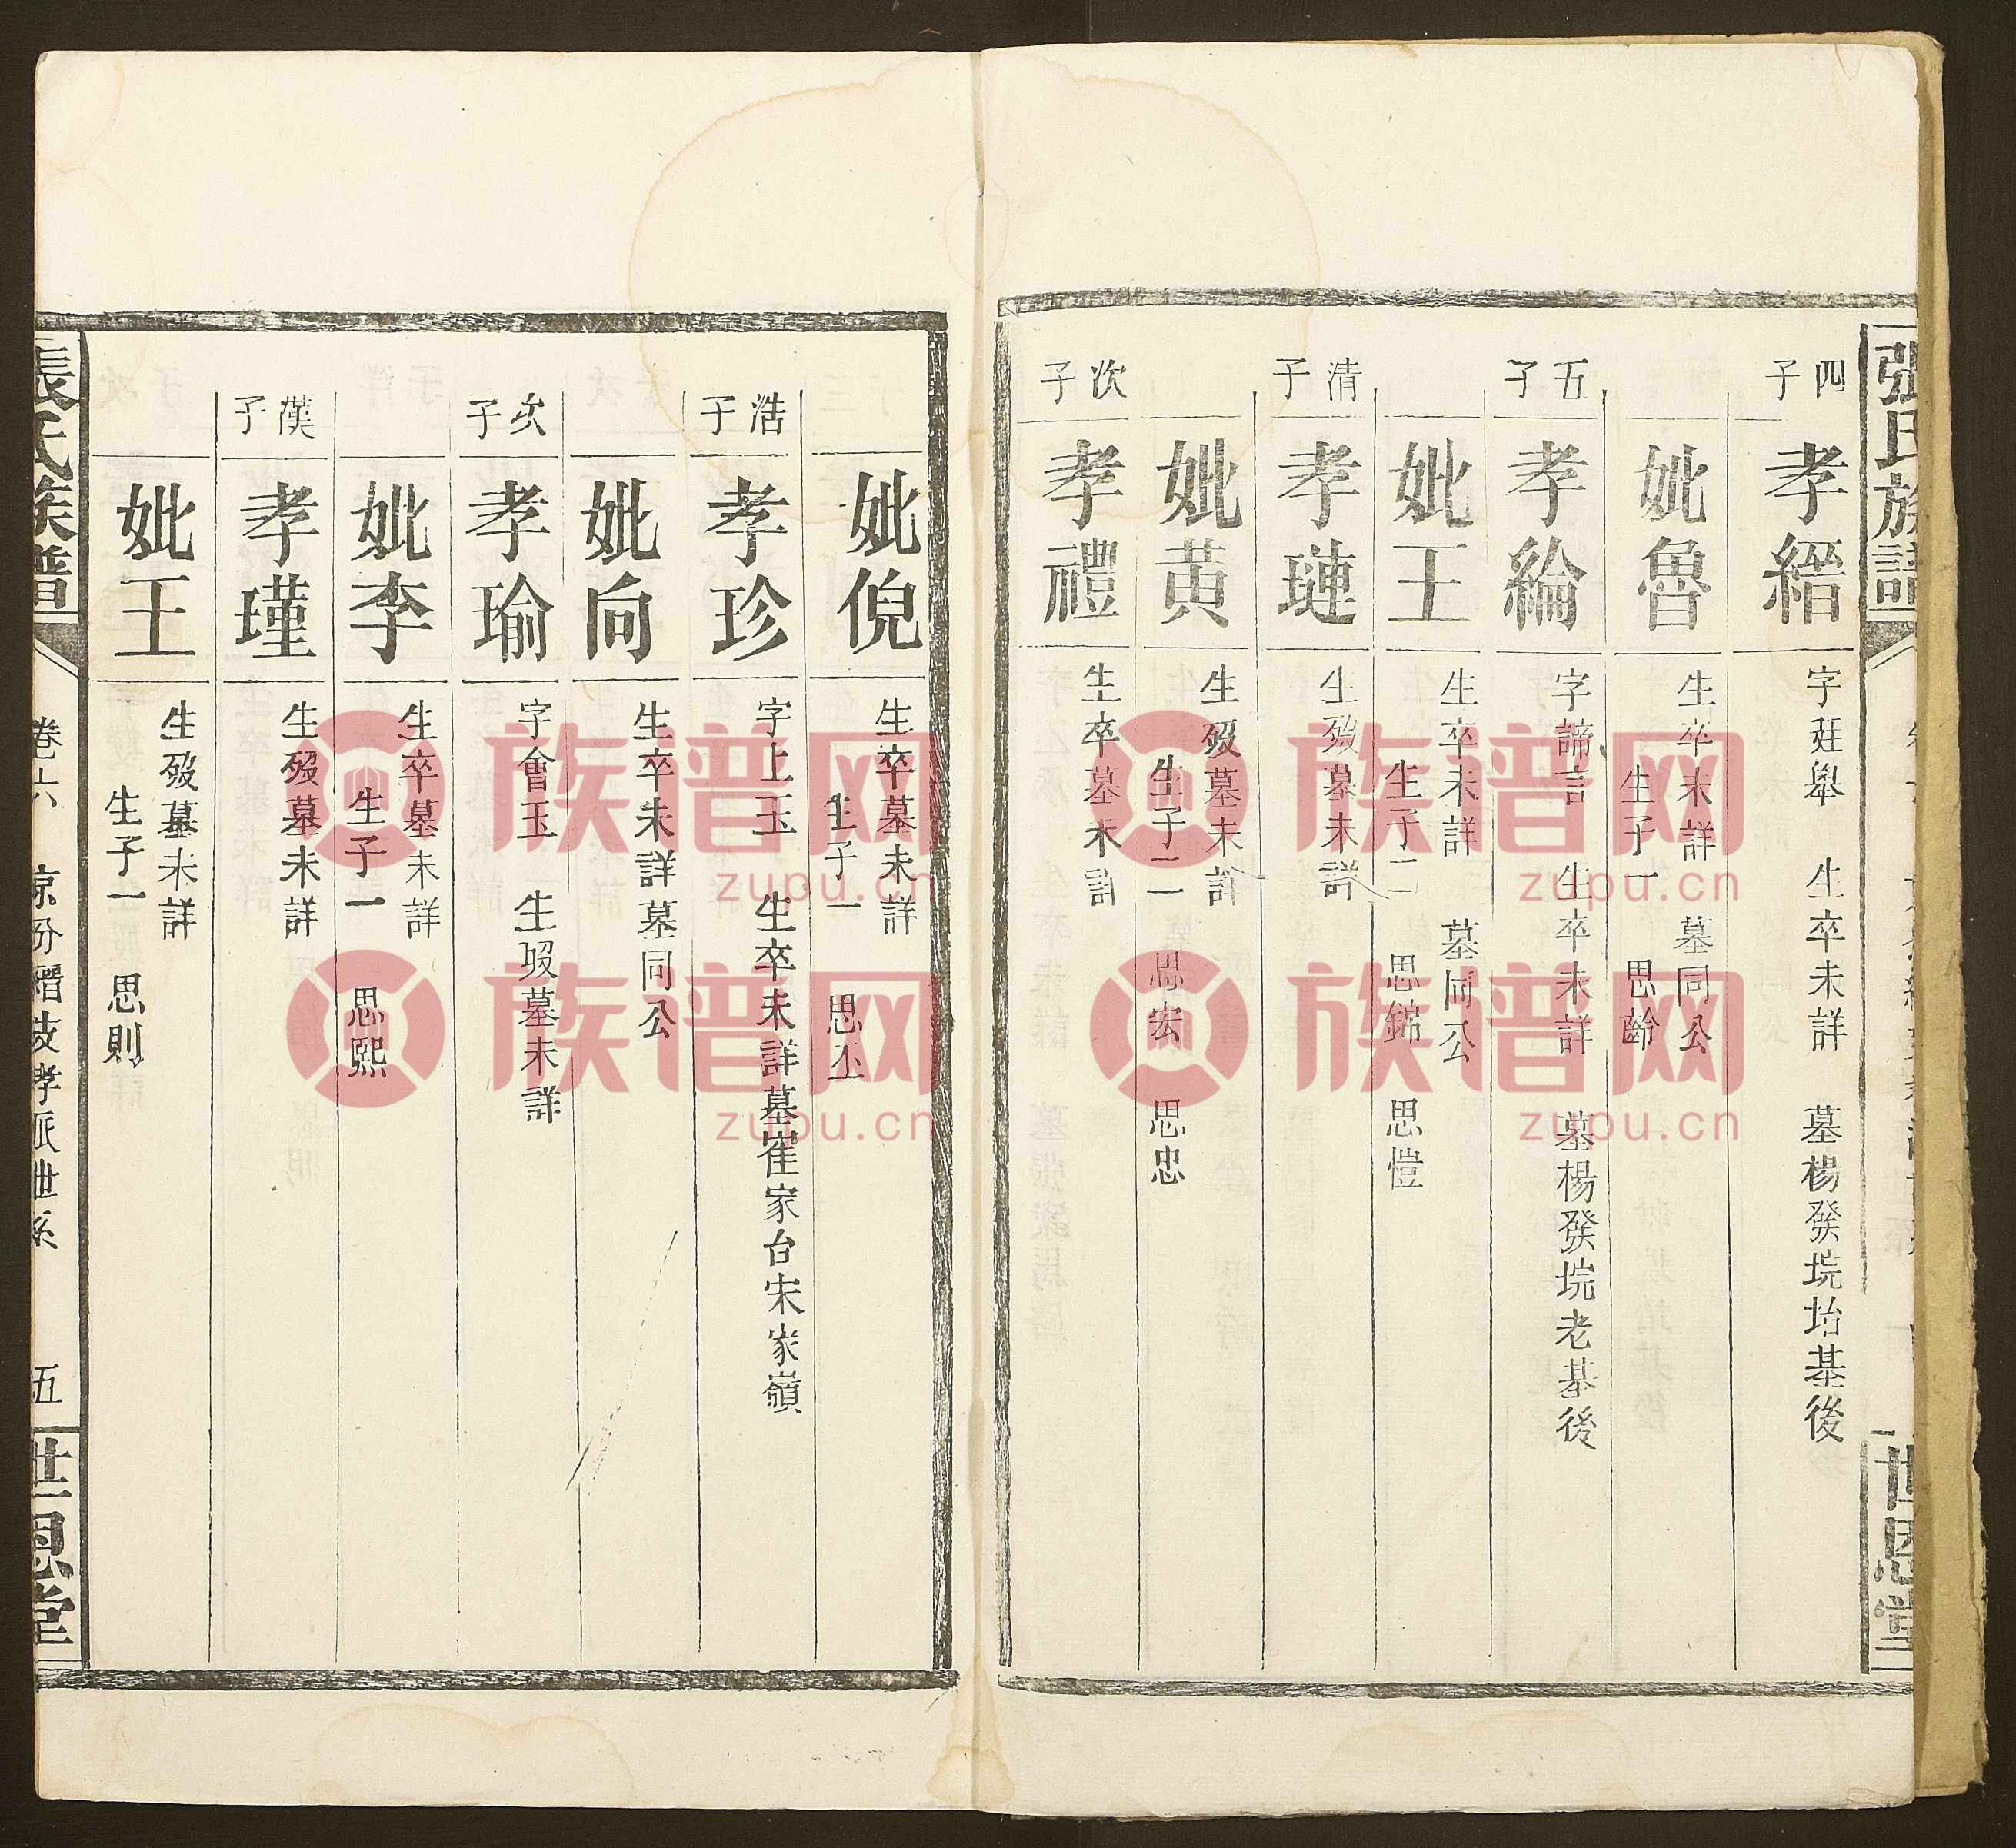 張氏族譜
世恩堂
四子
孝縉
字廷舉 生卒未詳 墓楊發垸坮基後
妣魯
生卒未詳 墓同公
生子一 思齡
五子
孝綸
字諦言 生卒未詳 墓楊發垸老基後
妣王
生卒未詳 墓同公
生子二 思錦 思愷
清子
孝璉
生歿墓未詳
妣黃
生歿墓未詳
生子二 思宏 思忠
次子
孝禮
生卒墓未詳
妣倪
生卒墓未詳
生子一 思丕
浩子
孝珍
字上玉 生卒未詳墓崔家台宋家嶺
妣向
生卒未詳墓同公
次子
孝瑜
字會玉 生歿墓未詳
妣李
生卒墓未詳
生子一 思熙
漢子
孝瑾
生歿墓未詳
妣王
生歿墓未詳
生子一 思則
張氏族譜
卷六 京分縉支孝派世系 五
世恩堂
族谱网
zupu.cn
族谱网
zupu.cn
族谱网
zupu.cn
族谱网
zupu.cn